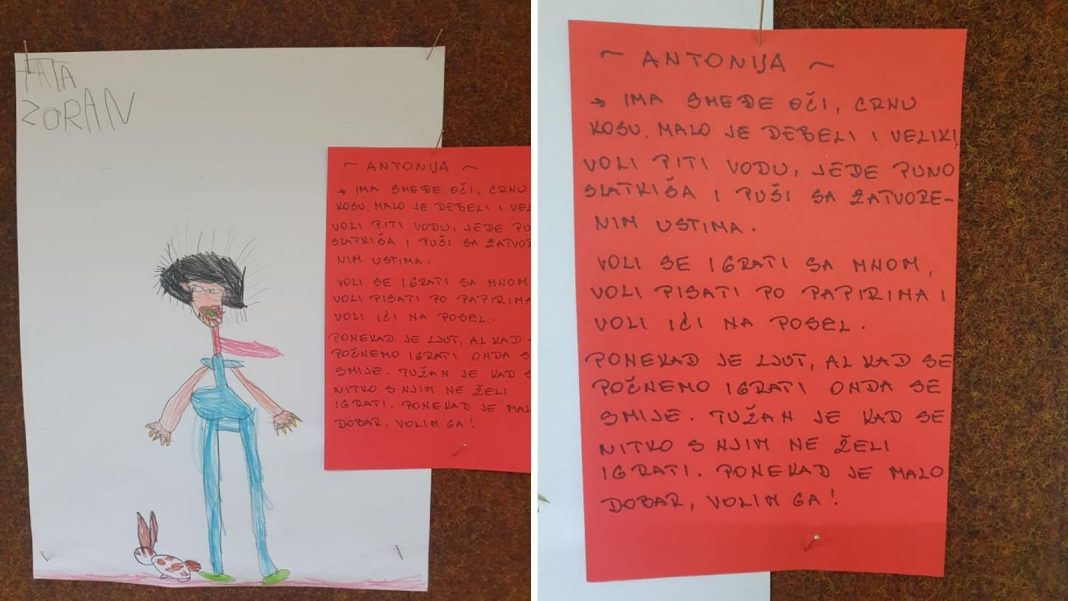 TATA
ZORAN
~ ANTONIJA ~
→ IMA SMEĐE OČI, CRNU
KOSU. MALO JE DEBELI I VEL
VOLI PITI VODU, JEDE PUN
SLATKIŠA I PUŠI SA ZATVO
NIM USTIMA.
VOLI SE IGRATI SA MNOM,
VOLI PISATI PO PAPIRIMA
VOLI IĆI NA POSEL.
PONEKAD JE LJUT, AL KAD
POČNEMO IGRATI ONDA S
SMIJE. TUŽAN JE KAD S
NITKO S NJIM NE ŽELI
IGRATI. PONEKAD JE MALO
DOBAR, VOLIM GA!
~ ANTONIJA ~
→ IMA SMEĐE OČI, CRNU
KOSU. MALO JE DEBELI I VELIKI.
VOLI PITI VODU, JEDE PUNO
SLATKIŠA I PUŠI SA ZATVORE-
NIM USTIMA.
VOLI SE IGRATI SA MNOM,
VOLI PISATI PO PAPIRIMA I
VOLI IĆI NA POSEL.
PONEKAD JE LJUT, AL KAD SE
POČNEMO IGRATI ONDA SE
SMIJE. TUŽAN JE KAD SE
NITKO S NJIM NE ŽELI
IGRATI. PONEKAD JE MALO
DOBAR, VOLIM GA!